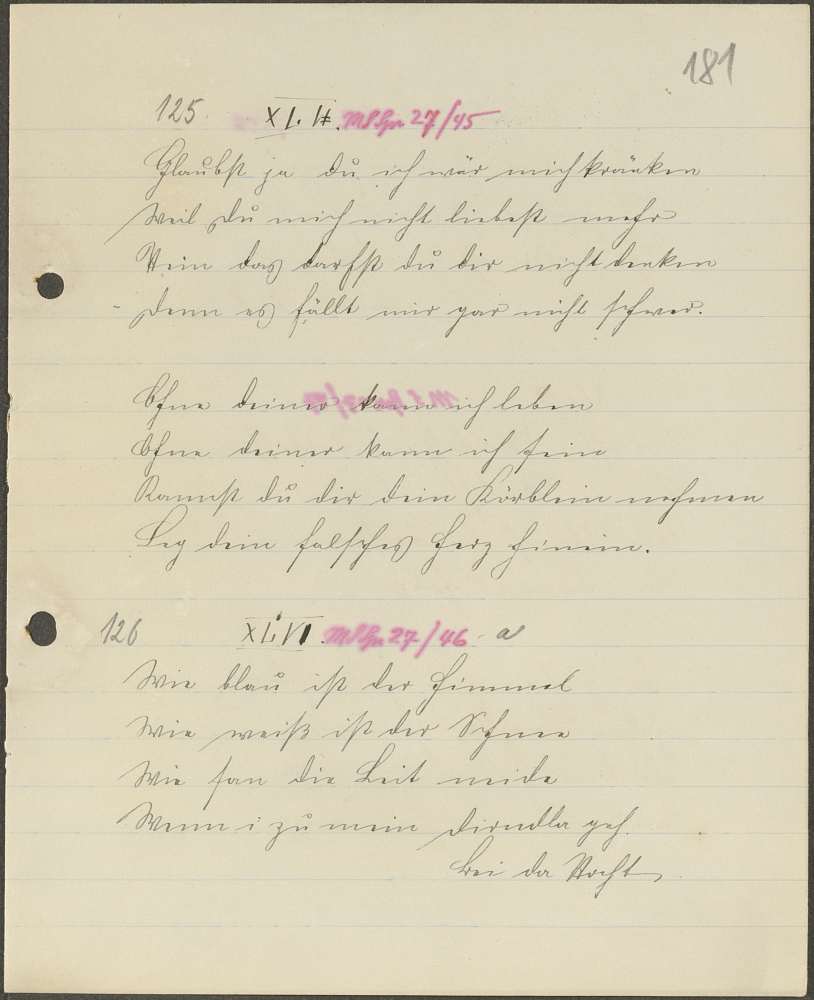 181
125. XLV. MS Spr 27/45
Glaubst ja du ich wär mich kränken
Weil du mich nicht liebest mehr
Nein das darfst du dir nicht denken
Denn es fällt mir gar nicht schwer.
Ohne deiner kann ich leben
Ohne deiner kann ich sein
Kannst du dir dein Körblein nehmen
Leg dein falsches Herz hinein.
126 XLVI. MS Spr 27/46 a
Wie blau ist der Himmel
Wie weiß ist der Schnee
Wie san die Leit neide
Wenn i zu mein Dirndla geh.
bei da Nocht